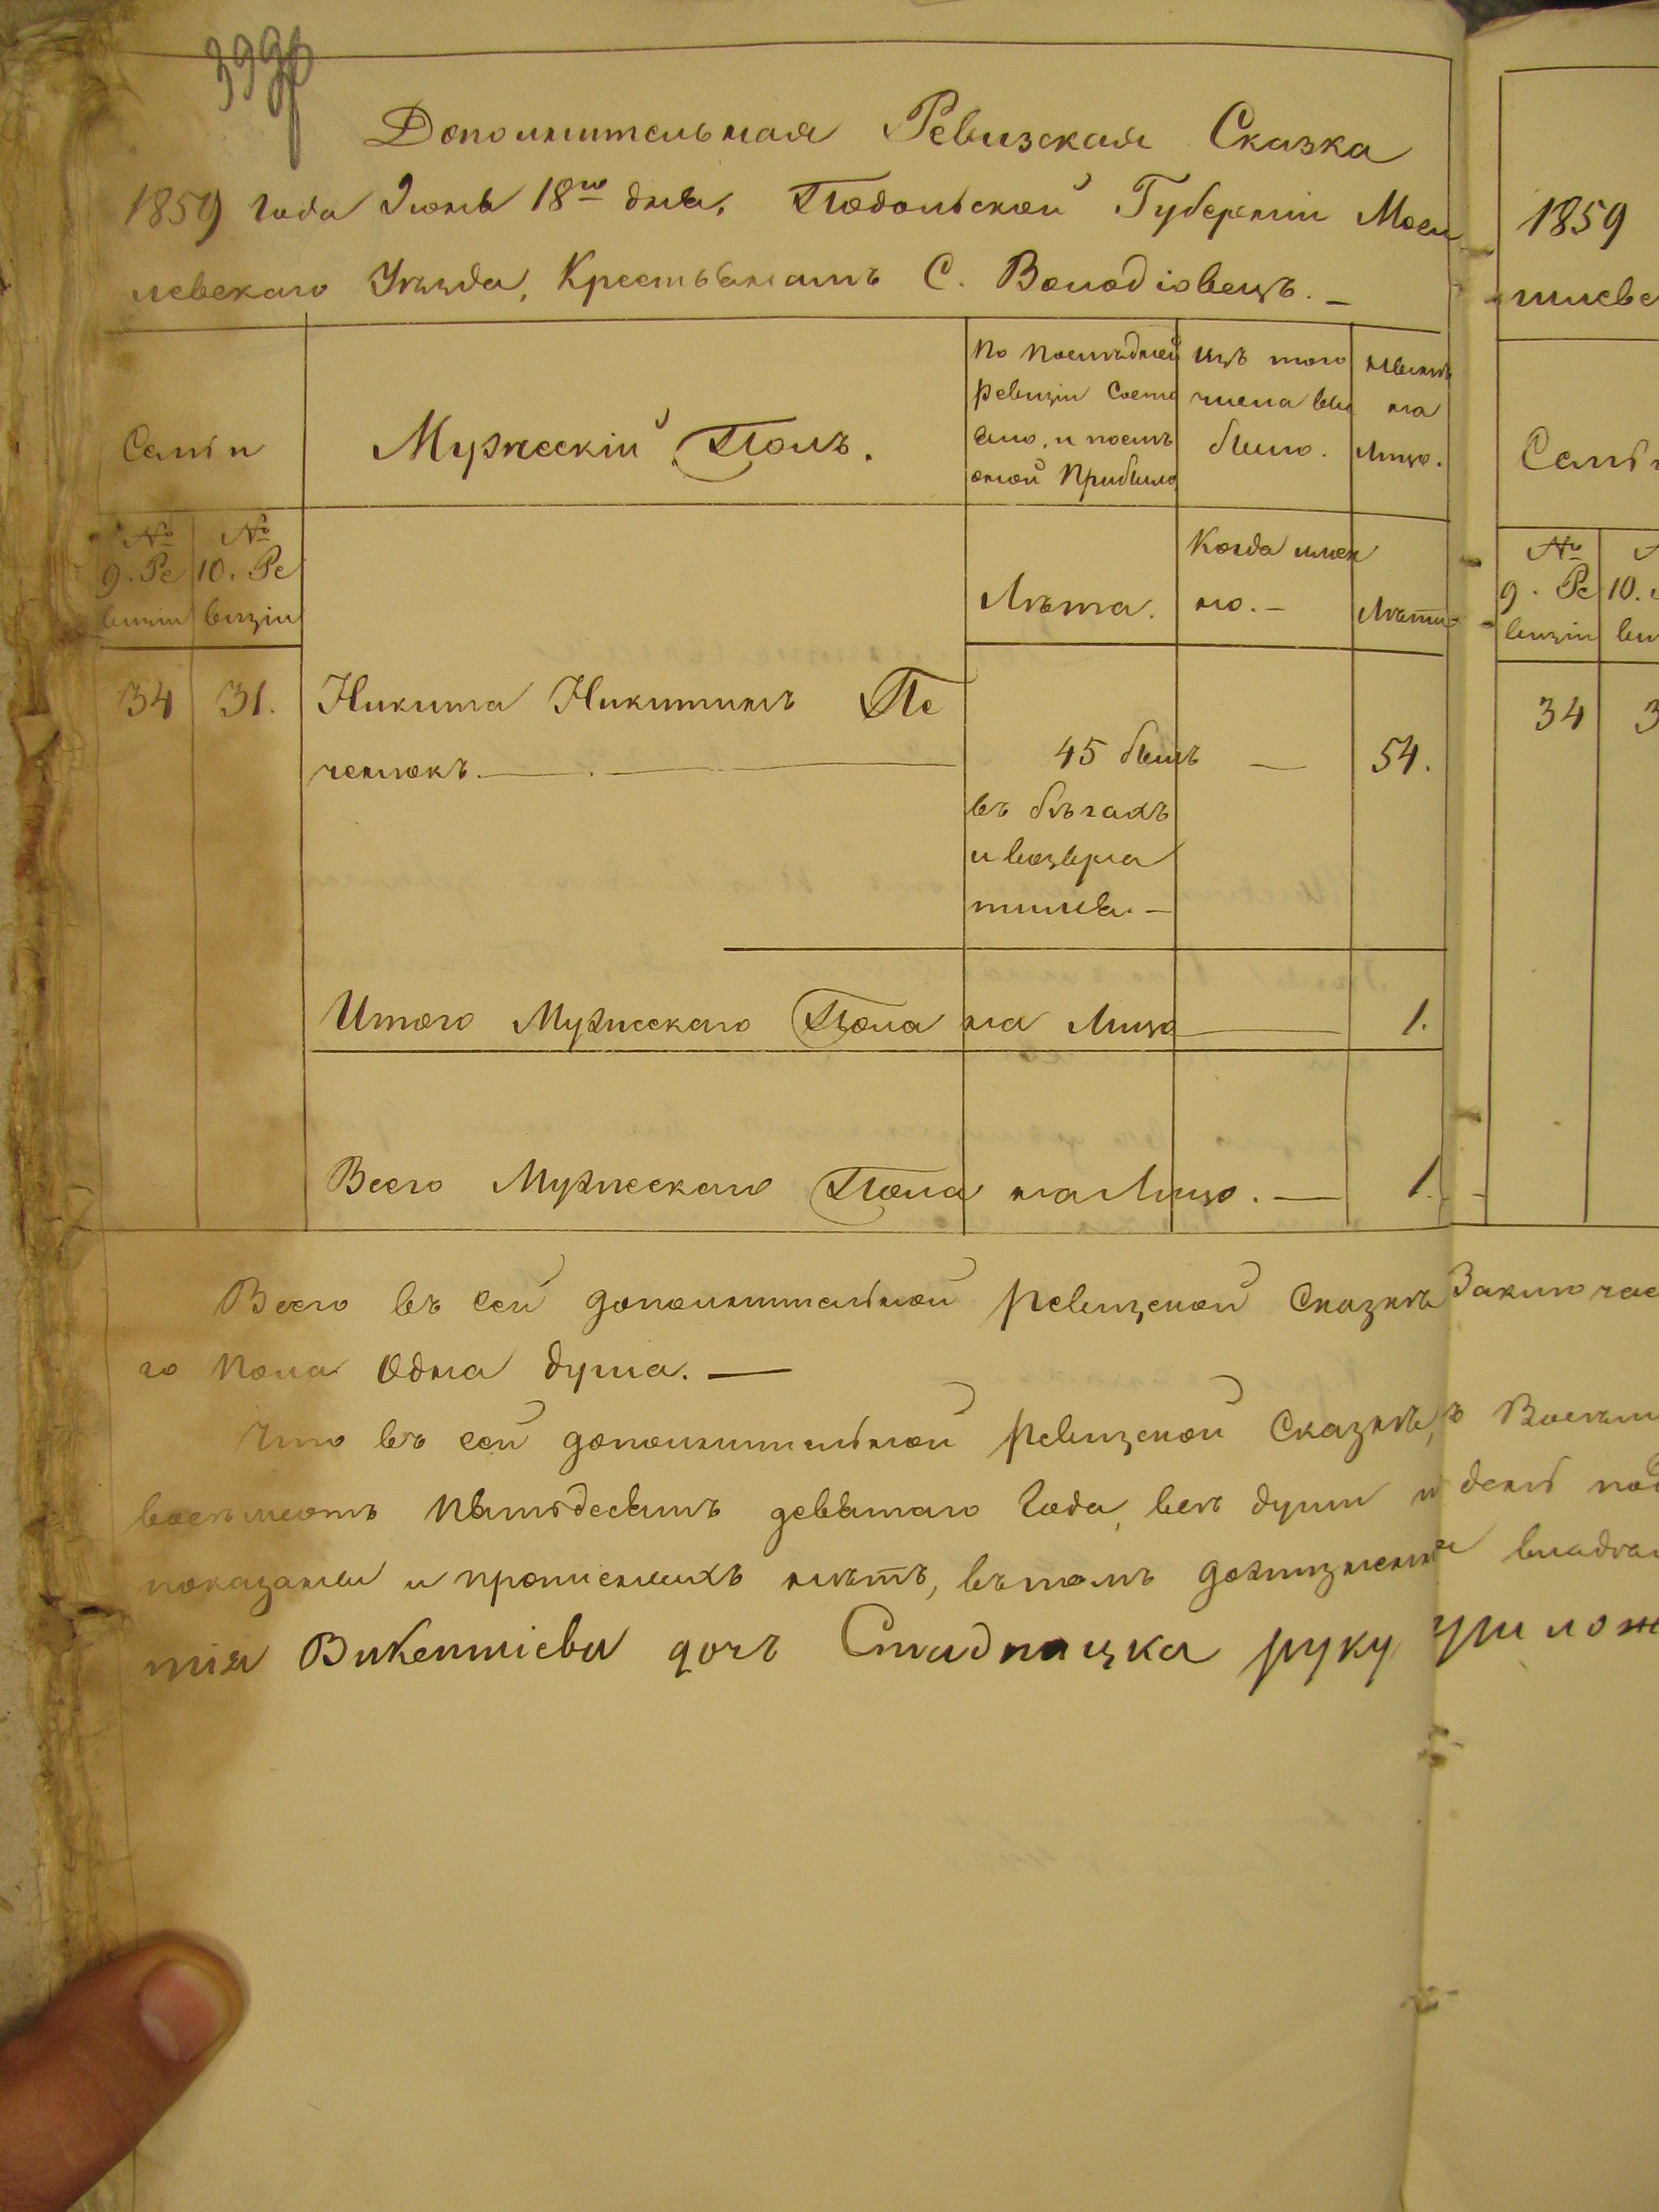 399об
Дополнительная Ревизская Сказка
1859 года Июня 18го дня, Подольской Губерніи Моги
левскаго Уѣзда, Крестьянамъ С. Володіовецъ. —
Семьи
Мужескій Полъ.
По послѣдней
ревизіи состо
яло, и послѣ
оной прибыло
Изъ того
числа вы
было.
нынѣ
на
лицо.
№
9. Ре
визіи
№
10. Ре
визіи
Лѣта.
Когда имен
но. —
Лѣта
34 31. Никита Никитинъ Пе
ченюкъ. — 45 былъ — 54.
въ бѣгахъ
и возвра
тился. —
Итого Мужескаго Пола на Лицо — 1.
Всего Мужескаго Пола на Лицо. — 1.
Всего въ сей дополнительной ревизской сказкѣ
го пола одна душа. —
Что въ сей дополнительной ревизской сказкѣ,
восемьсотъ пятьдесятъ девятаго года, всѣ души и
показаны и прописныхъ нѣтъ, въ томъ
тія Викентіева дочъ Стадницка руку
1859
Семьи
№
9. Ре
визіи
10.
34 3
Заключае